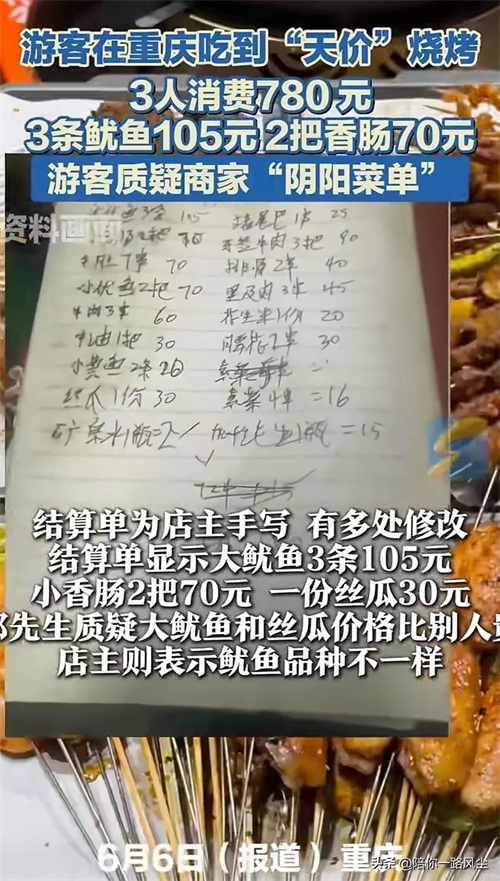 游客在重庆吃到“天价”烧烤
3人消费780元
3条鱿鱼105元 2把香肠70元
游客质疑商家“阴阳菜单”
资料画面
鱼3条 105
2把 70
1串 25
牛肉3把 90
70
排骨2串 40
小优鱼2把 70
里及肉3串 45
牛肉3串 60
花生米1份 20
牛油1把 30
腰花2串 30
小黄鱼2条 20
丝瓜1份 30
素菜4串 =16
矿泉水1瓶=2
=15
结算单为店主手写 有多处修改
结算单显示大鱿鱼3条105元
小香肠2把70元 一份丝瓜30元
先生质疑大鱿鱼和丝瓜价格比别人贵
店主则表示鱿鱼品种不一样
6月6日（报道） 重庆
头条 @陪你一路风尘